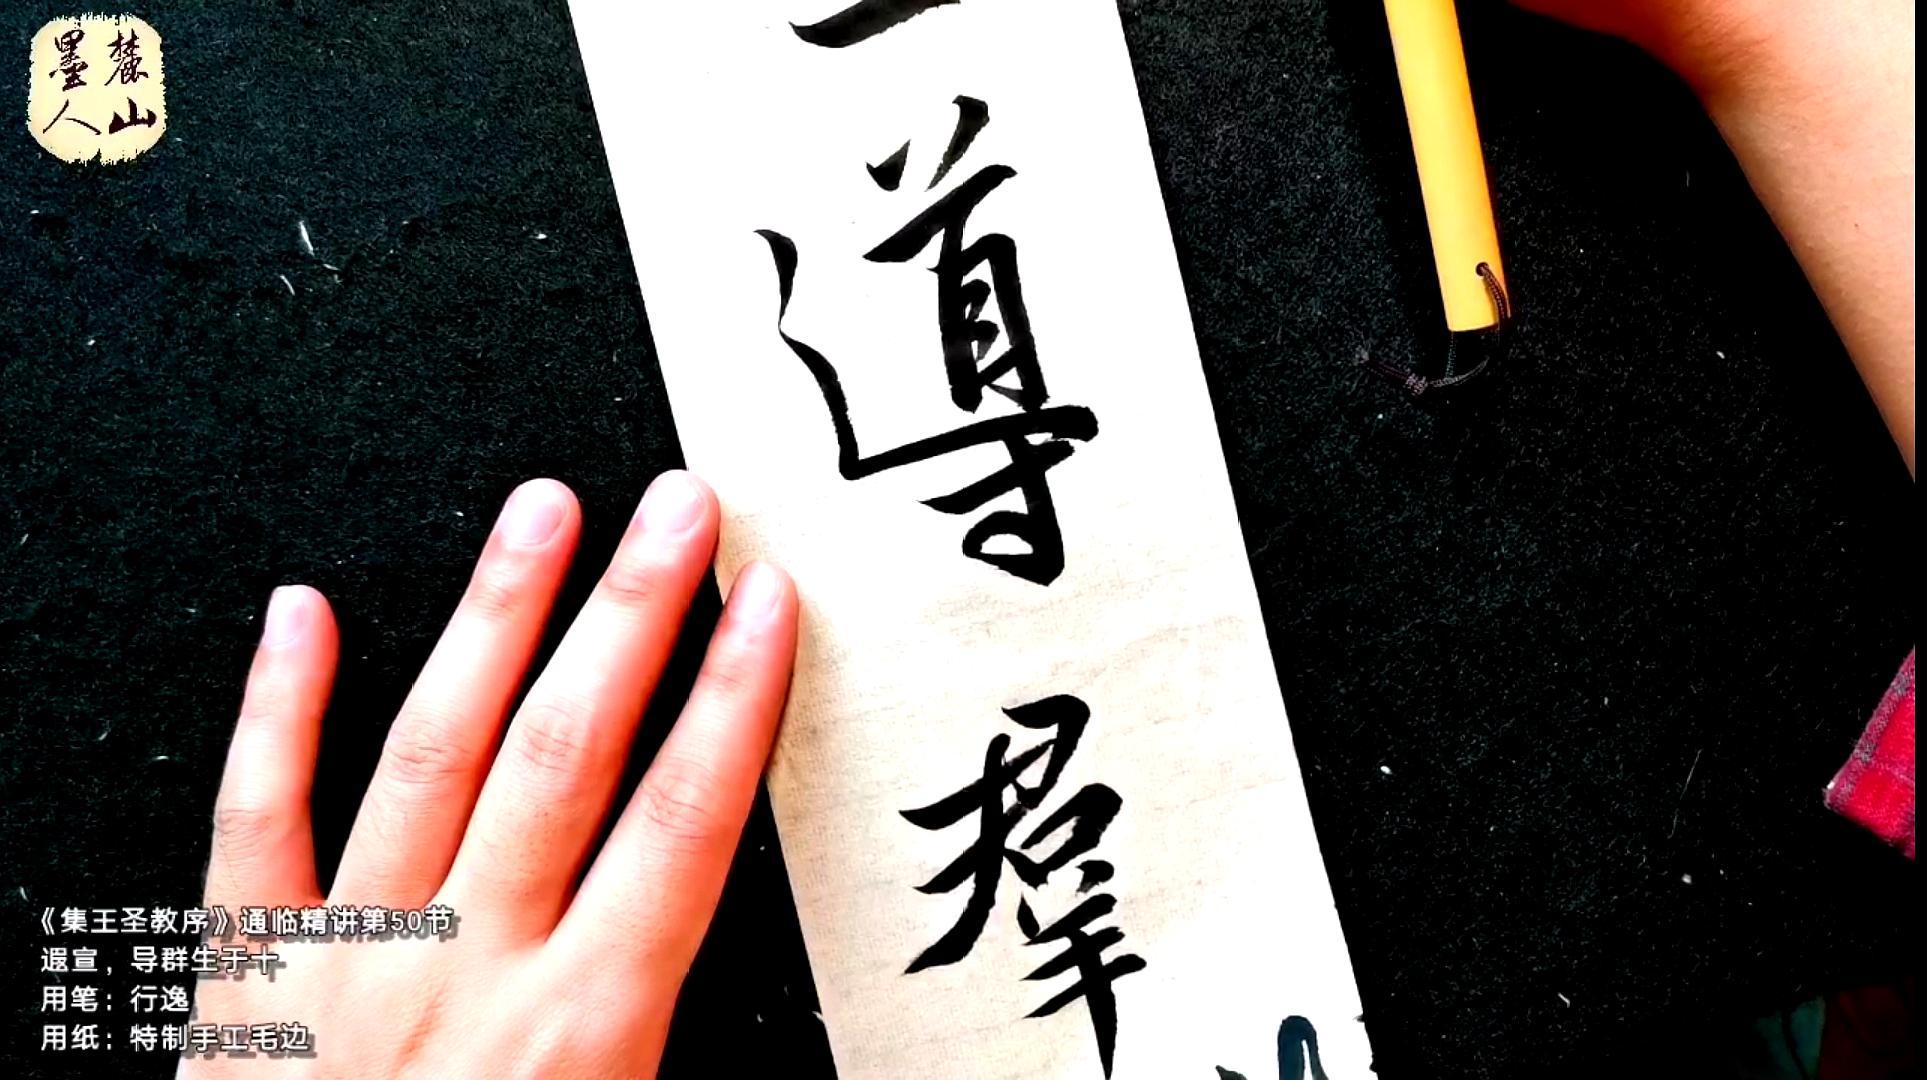 麓山
墨人
導
羣
《集王圣教序》通临精讲第50节
遐宣，导群生于十
用笔：行逸
用纸：特制手工毛边